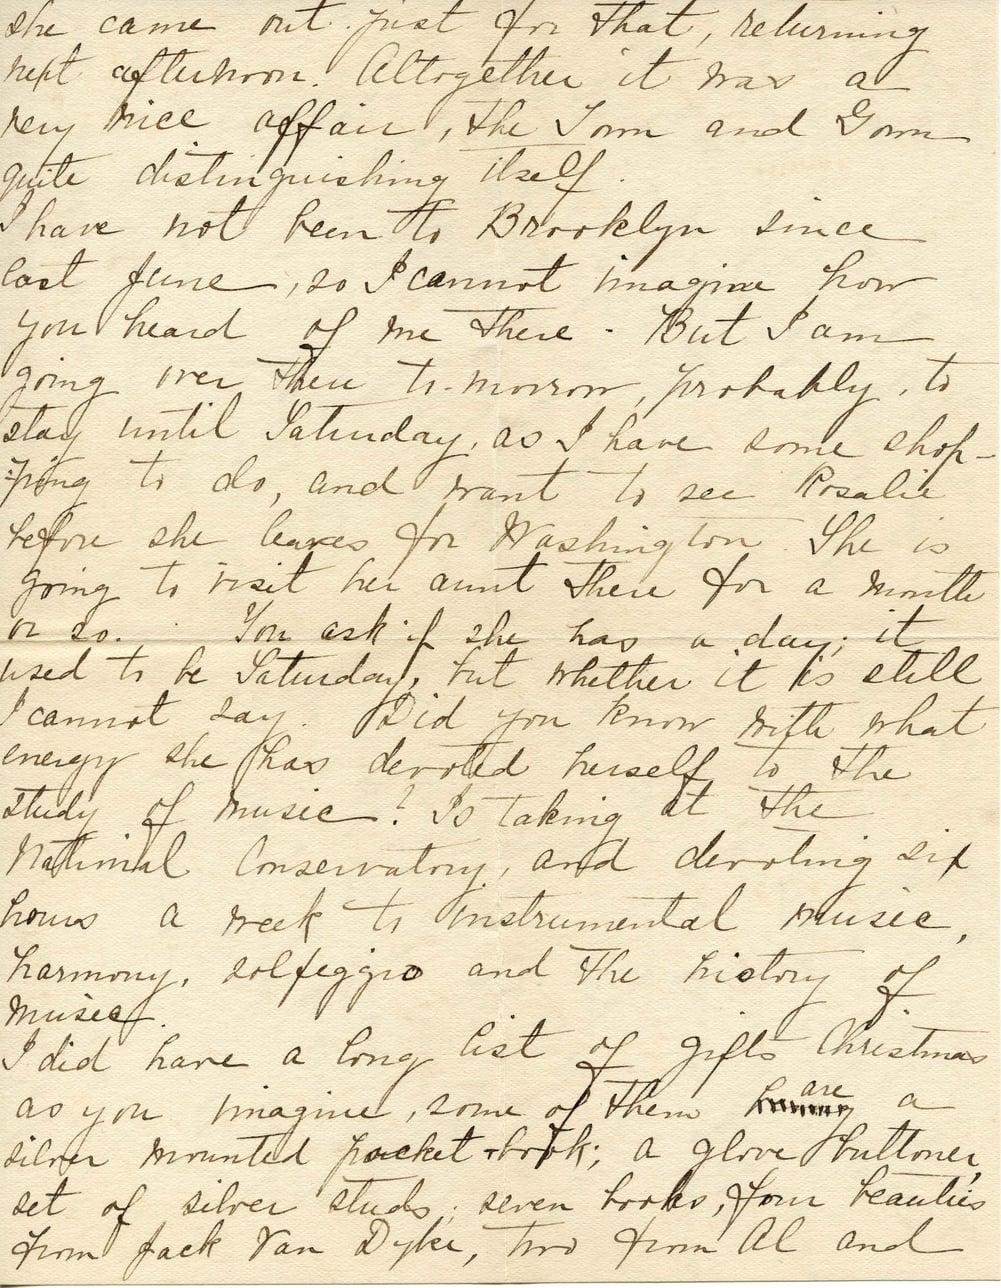 she came out just for that, returning
next afternoon. Altogether it was a
very nice affair, the Town and Gown
quite distinguishing itself.
I have not been to Brooklyn since
last June, so I cannot imagine how
you heard of me there. But I am
going over there to-morrow, probably, to
stay until Saturday, as I have some shop-
ping to do, and want to see Rosalie
before she leaves for Washington. She is
going to visit her aunt there for a month
or so. You ask if she has a day; it
used to be Saturday, but whether it is still
I cannot say. Did you know with what
energy she has devoted herself to the
study of music? Is taking at the
National Conservatory, and devoting six
hours a week to instrumental music,
harmony, solfeggio and the history of
music.
I did have a long list of gifts Christmas
as you imagine, some of them are a
silver mounted pocket-book; a glove buttoner,
set of silver studs; seven books, four beauties
from Jack Van Dyke, two from Al and